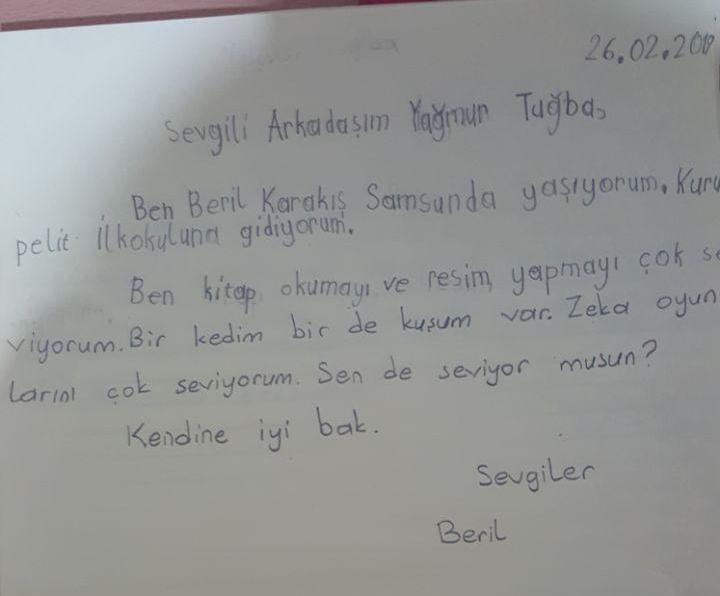 26.02.201
Sevgili Arkadaşım Yağmur Tuğba,
Ben Beril Karakış Samsunda yaşıyorum. Kuru
pelit İlkokuluna gidiyorum.
Ben kitap okumayı ve resim yapmayı çok se
viyorum. Bir kedim bir de kuşum var. Zeka oyun
larını çok seviyorum. Sen de seviyor musun?
Kendine iyi bak.
Sevgiler
Beril